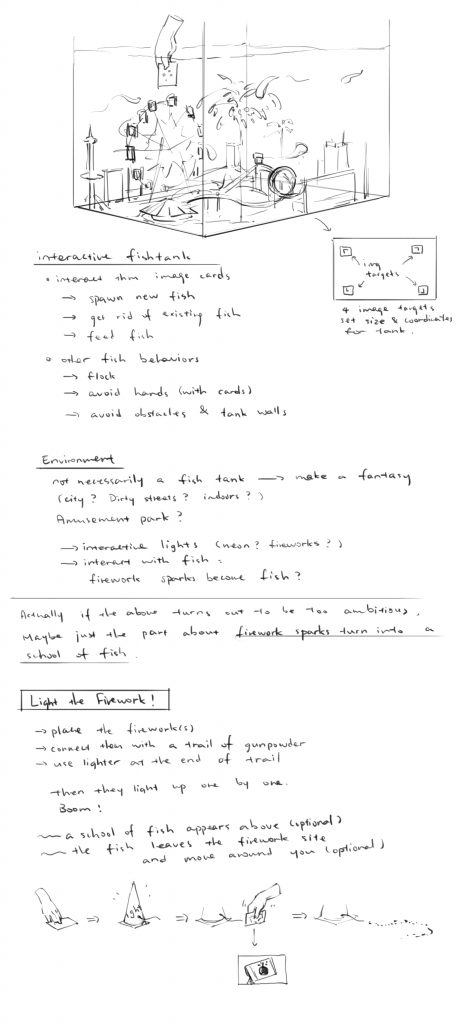 interactive fishtank
• interact thru image cards
→ spawn new fish
→ get rid of existing fish
→ feed fish
• other fish behaviors
→ flock
→ avoid hands (with cards)
→ avoid obstacles & tank walls
img
targets
4 image targets
set size & coordinates
for tank.
Environment
not necessarily a fish tank → make a fantasy
(city? Dirty streets? indoors?)
Amusement park?
→ interactive lights (neon? fireworks?)
→ interact with fish:
firework sparks become fish?
Actually if the above turns out to be too ambitious,
Maybe just the part about firework sparks turn into a
school of fish.
Light the Firework!
→ place the firework(s)
→ connect them with a trail of gunpowder
→ use lighter at the end of trail
then they light up one by one.
Boom!
~ a school of fish appears above (optional)
~ the fish leaves the firework site
and move around you (optional)